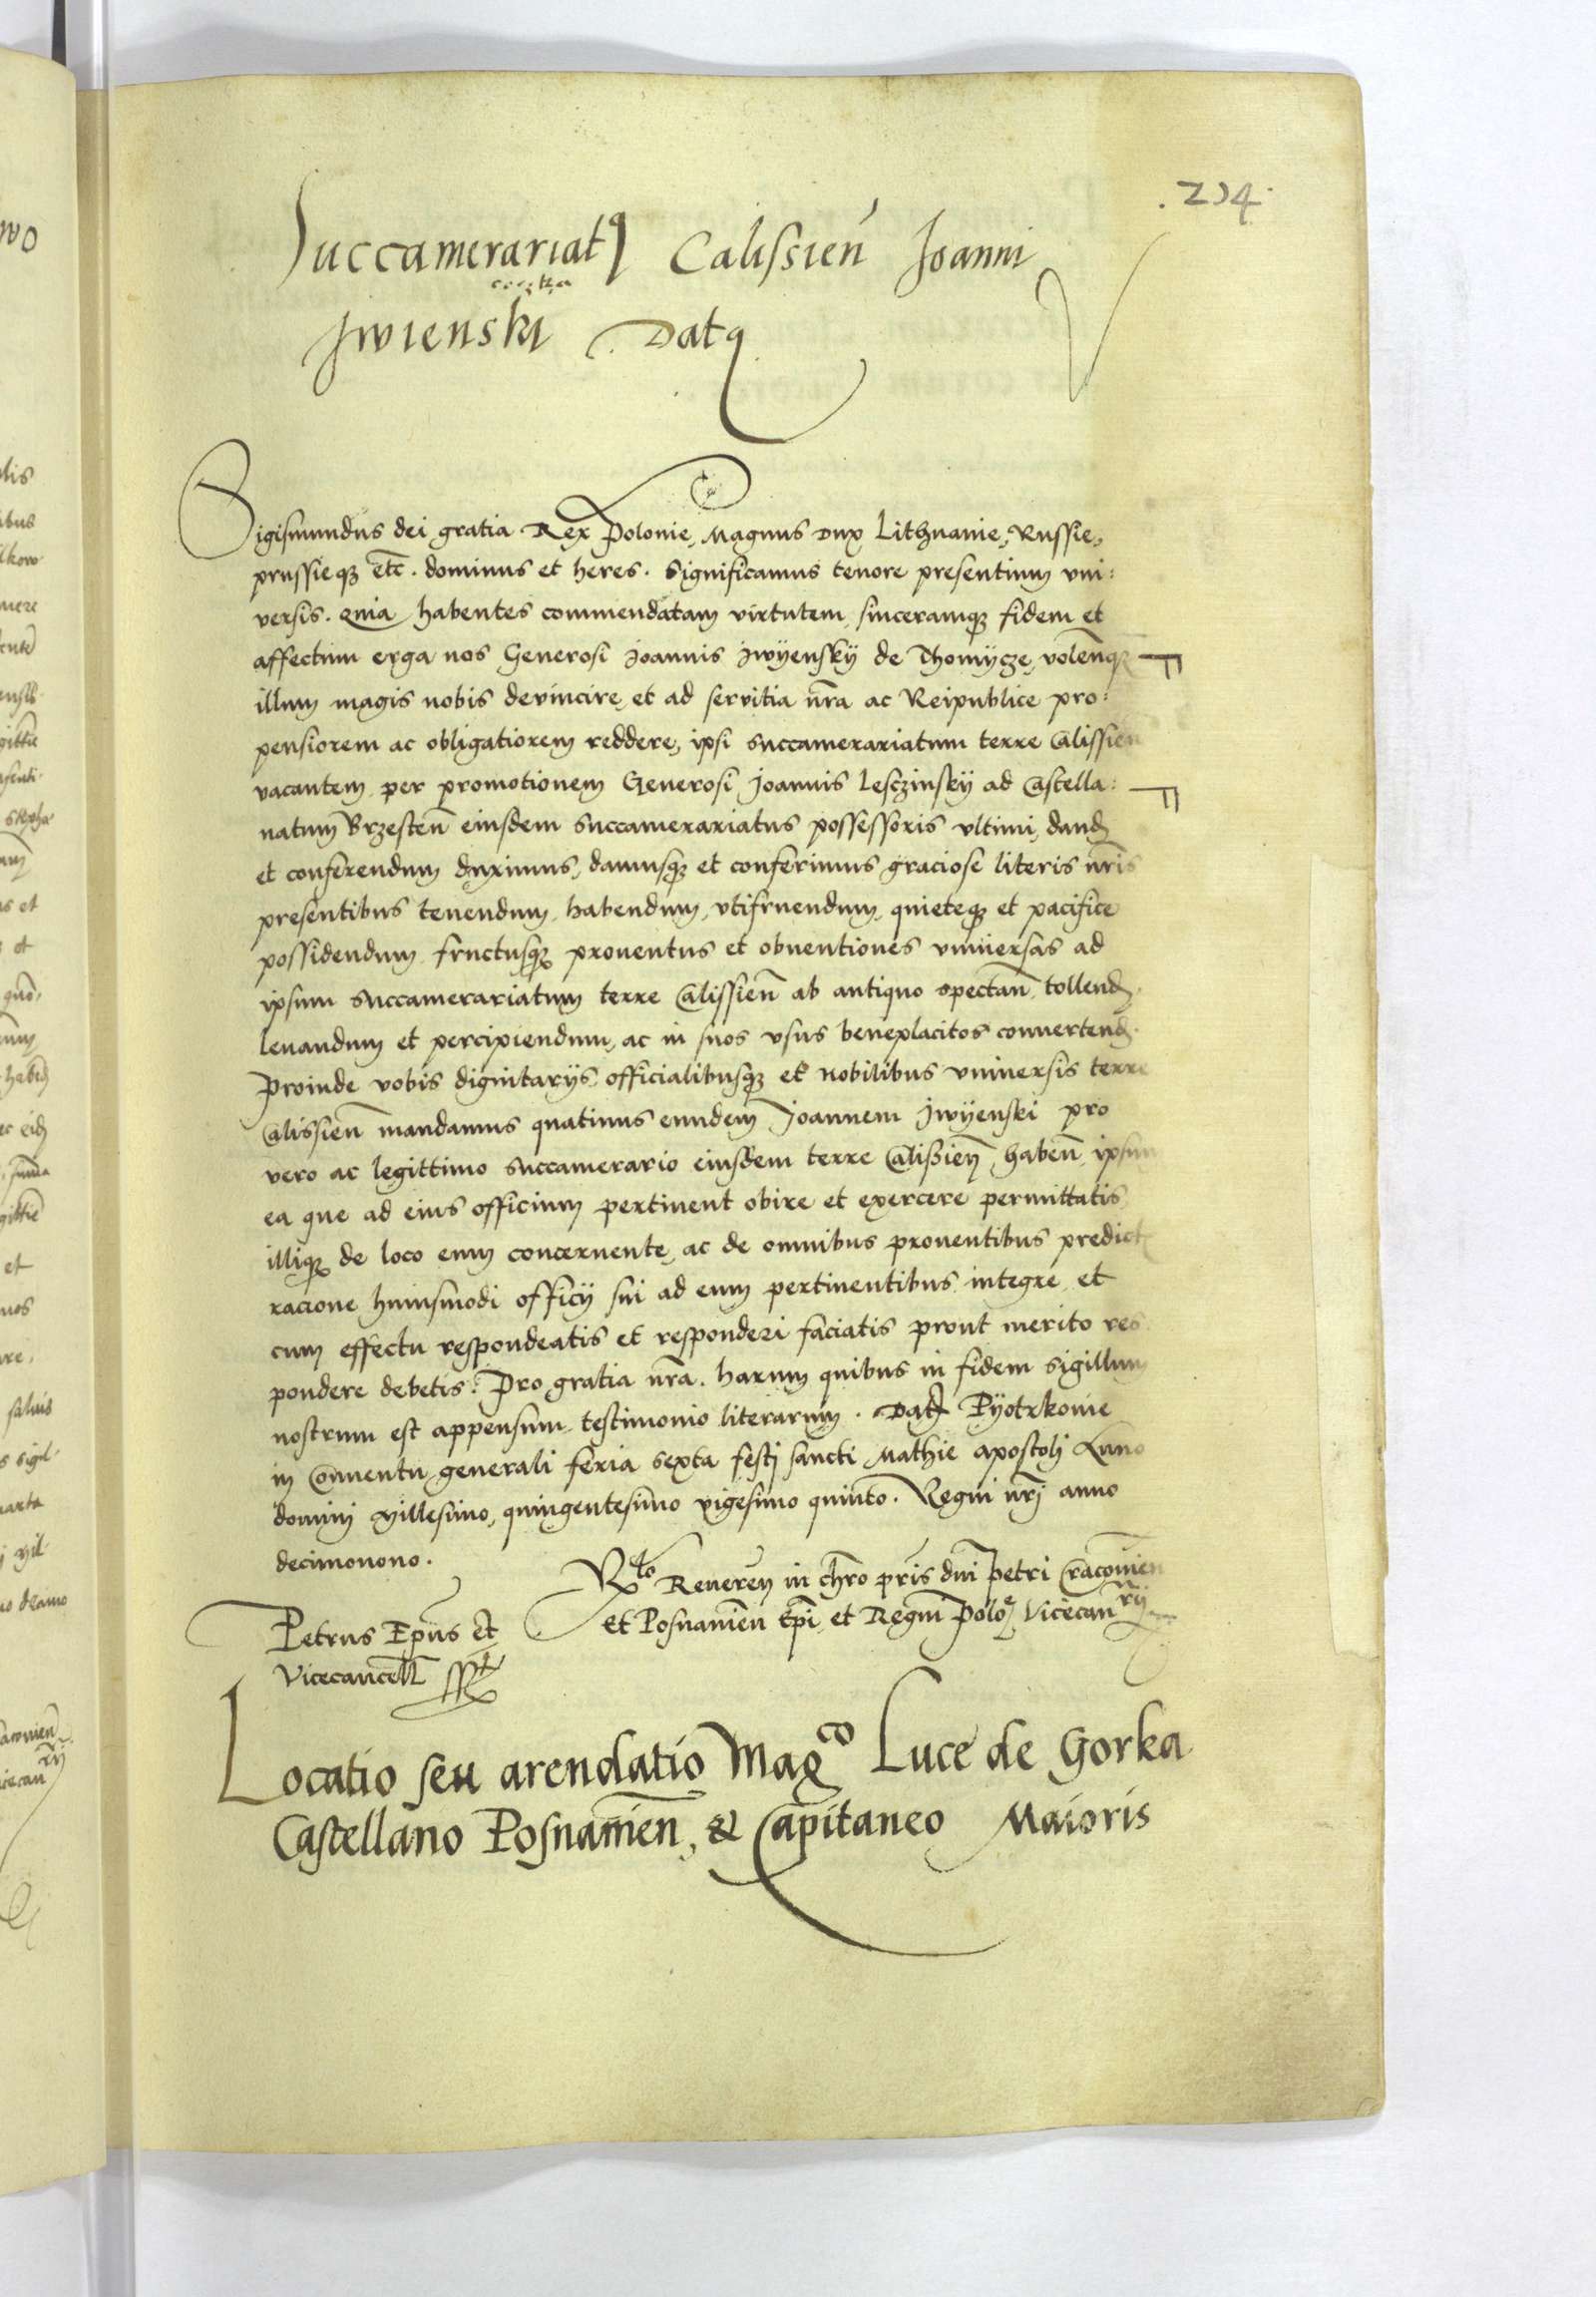 .234.
Succamerariatq Calissień Joanni
Jwienski Datq
Sigismundus dei gratia Rex polonie, Magnus Dux Lithuanie, Russie,
prussieqz etc. dominus et heres. Significamus tenore presentium vni:
versis. Quia habentes commendatam virtutem sinceramqz fidem et
affectum erga nos Generosi Joannis Jwyensky de Thomycze, volenqz
illum magis nobis devincire, et ad servitia nra ac Reipublice pro:
pensiorem ac obligatiorem reddere, ipsi succamerariatum terre Calissien
vacantem per promotionem Generosi Joannis Lesczinsky ad Castella:
natum Brzesteñ eiusdem succamerariatus possessoris vltimi, dand
et conferendum duximus, damusqz et conferimus graciose literis nris
presentibus tenendum, habendum, vtifruendum, quieteqz et pacifice
possidendum fructusqz prouentus et obuentiones vniuersas ad
ipsum succamerariatum terre Calissieñ ab antiquo spectañ tollend.
leuandum et percipiendum, ac in suos vsus beneplacitos conuertend.
Proinde vobis dignitarijs officialibusqz et nobilibus vniuersis terre
Calissieñ mandamus quatinus eundem Joannem Jwyenski pro
vero ac legittimo succamerario eiusdem terre Calissieñ habeñ, ipsum
ea que ad eius officium pertinent obire et exercere permittatis,
illiqz de loco eum concernente, ac de omnibus prouentibus predict
racione huiusmodi officij sui ad eum pertinentibus integre, et
cum effectu respondeatis et responderi faciatis prout merito res
pondere debetis. Pro gratia nra. harum quibus in fidem sigillum
nostrum est appensum testimonio literarum. Dat Pyotrkouie
in Conuentu generali feria sexta festj sancti Mathie apostolj Anno
dominj Millesimo, quingentesimo vigesimo quinto. Regni nrj anno
decimonono.
Rto Reueren in chro pris dni Petri Cracouien
et Posnanieñ Epi, et Regni Poloe, Vicecanrij
Petrus Epus et
Vicecancell sst
Locatio seu arendatio Magco Luce de Gorka
Castellano Posnanieñ, & Capitaneo Maioris